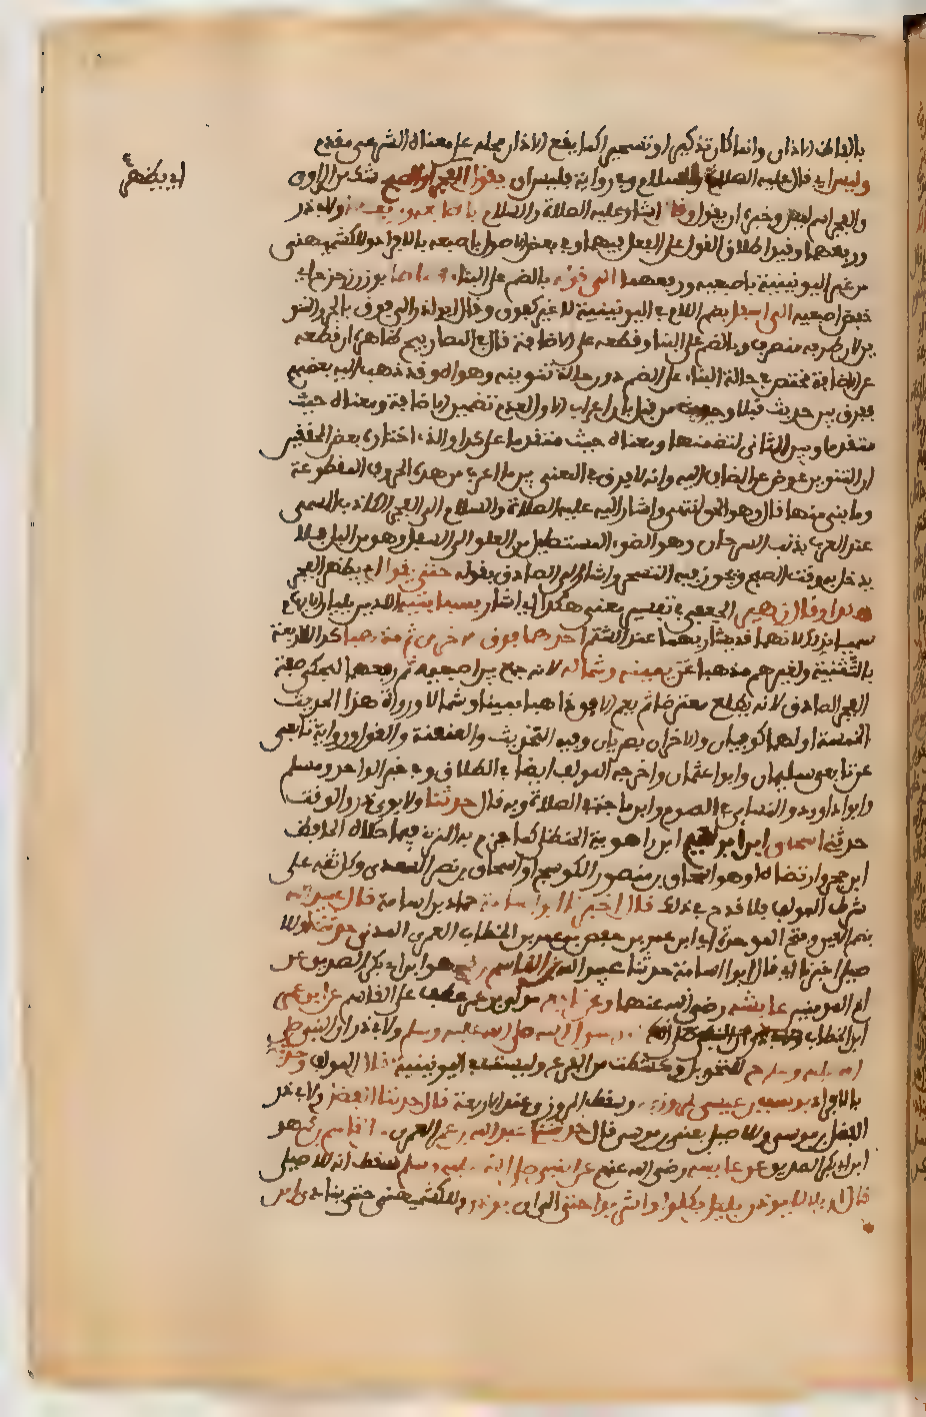 بالفاظ الاذان وانما كان تذكيرا او تسحيرا كما يقع الاذان محله على معناه الشرعي مقدم
وليس اي قال عليه الصلاة والسلام وفي رواية فليس ان يقول الفجر او الصبح شك من الراوي
والفجر اسم ليس وخبره ان يقول وقال اي اشار عليه الصلاة والسلام باصابعه ورفعها ولابي ذر
ورفعهما وفيه اطلاق القول على الفعل فيهما وفي بعض الاصول باصبعه بالافراد وللكشميهني
من غير اليونينية باصبعيه ورفعهما الى فوق بالضم على البناء
خفض اصبعيه الى اسفل بضم اللام في اليونينية لا غير كفوق وقال ابو ذر الى فوق بالجر والتنوين
لانه ظرف متصرف وبالضم على البناء وقطعه عن الاضافة قال في المصابيح ظاهره ان قطعه
عن الاضافة مختص بحالة البناء على الضم دون حالة تنوينه وهو امر قد ذهب اليه بعضهم
ففرق بين جئت قبلا وجئت من قبل بان اعرب الاول لعدم تضمين الاضافة ومعناه جئت
متقدما وبني الثاني لتضمنها ومعناه جئت متقدما على كذا والذي اختاره بعض المحققين
ان التنوين عوض عن المضاف اليه وانه لا فرق في المعنى بين ما اعرب من هذه الظروف المقطوعة
وما بني منها قال وهو الحق انتهى واشار اليه عليه الصلاة والسلام الى الفجر الكاذب المسمى
عند العرب بذنب السرحان وهو الضوء المستطيل من العلو الى السفل وهو من الليل فلا
يدخل به وقت الصبح ويجوز فيه التسحر واشار الى الصادق بقوله حتى يقول اي يظهر الفجر
هكذا وقال زهير الجعفي في تفسير معنى هكذا اي اشار بسبابتيه اللتين يليان الابهام
سميتا بذلك لانهما قد يشار بهما عند الشتم احداهما فوق الاخرى ثم مدهما كذا للاربعة
بالتثنية ولغيرهم مدها عن يمينه وشماله لانه جمع بين اصبعيه ثم رفعهما ليحكي صفة
الفجر الصادق لانه يطلع معترضا ثم يعم الافق ذاهبا يمينا وشمالا ورواة هذا الحديث
الخمسة اولهما كوفيان والاخران بصريان وفيه التحديث والعنعنة والقول ورواية تابعي
عن تابعي سليمان وابو عثمان واخرجه المؤلف ايضا في الطلاق وفي خبر الواحد ومسلم
وابو داود والنسائي في الصوم وابن ماجه في الصلاة وبه قال حدثنا ولابوي ذر والوقت
حدثني اسحاق ابن ابراهيم ابن راهويه الحنظلي كما جزم به المزي فيما حكاه الحافظ
ابن حجر وارتضاه او هو اسحاق بن منصور الكوسج او اسحاق بن نصر السعدي وكل ثقة على
شرط المؤلف فلا قدح في ذلك قال اخبرنا ابو اسامة حماد بن اسامة قال عبيد الله
بضم العين وفتح الموحدة اي ابن عمر بن حفص بن عمر بن الخطاب العمري المدني حدثنا وللا
صيلي اخبرنا اي قال ابو اسامة حدثنا عبيد الله عن القاسم بن محمد هو ابن ابي بكر الصديق عن
ام المومنين عايشة رضي الله عنها وعن نافع مولى بن عمر عطف على القاسم عن ابن عمر
ابن الخطاب ان رسول الله صلى الله عليه وسلم ولابي ذر ان النبي صلى
الله عليه وسلم ح للتحويل وسقطت من الفرع وليست في اليونينية قال المؤلف وحدثني
بالافراد يوسف بن عيسى المروزي وسقط المروزي عند الاربعة قال حدثنا الفضل ولابي ذر
الفضل بن موسى وللاصيلي يعني بن موسى قال حدثنا عبيد الله بن عمر العمري عن القاسم بن محمد هو
ابن ابي بكر الصديق عن عايشة رضي الله عنهم عن النبي صلى الله عليه وسلم سقط انه للاصيلي
قال ان بلالا يوذن بليل فكلوا واشربوا حتى اي الى ان يوذن وللكشميهني حتى ينادي ابن
اي يظهر